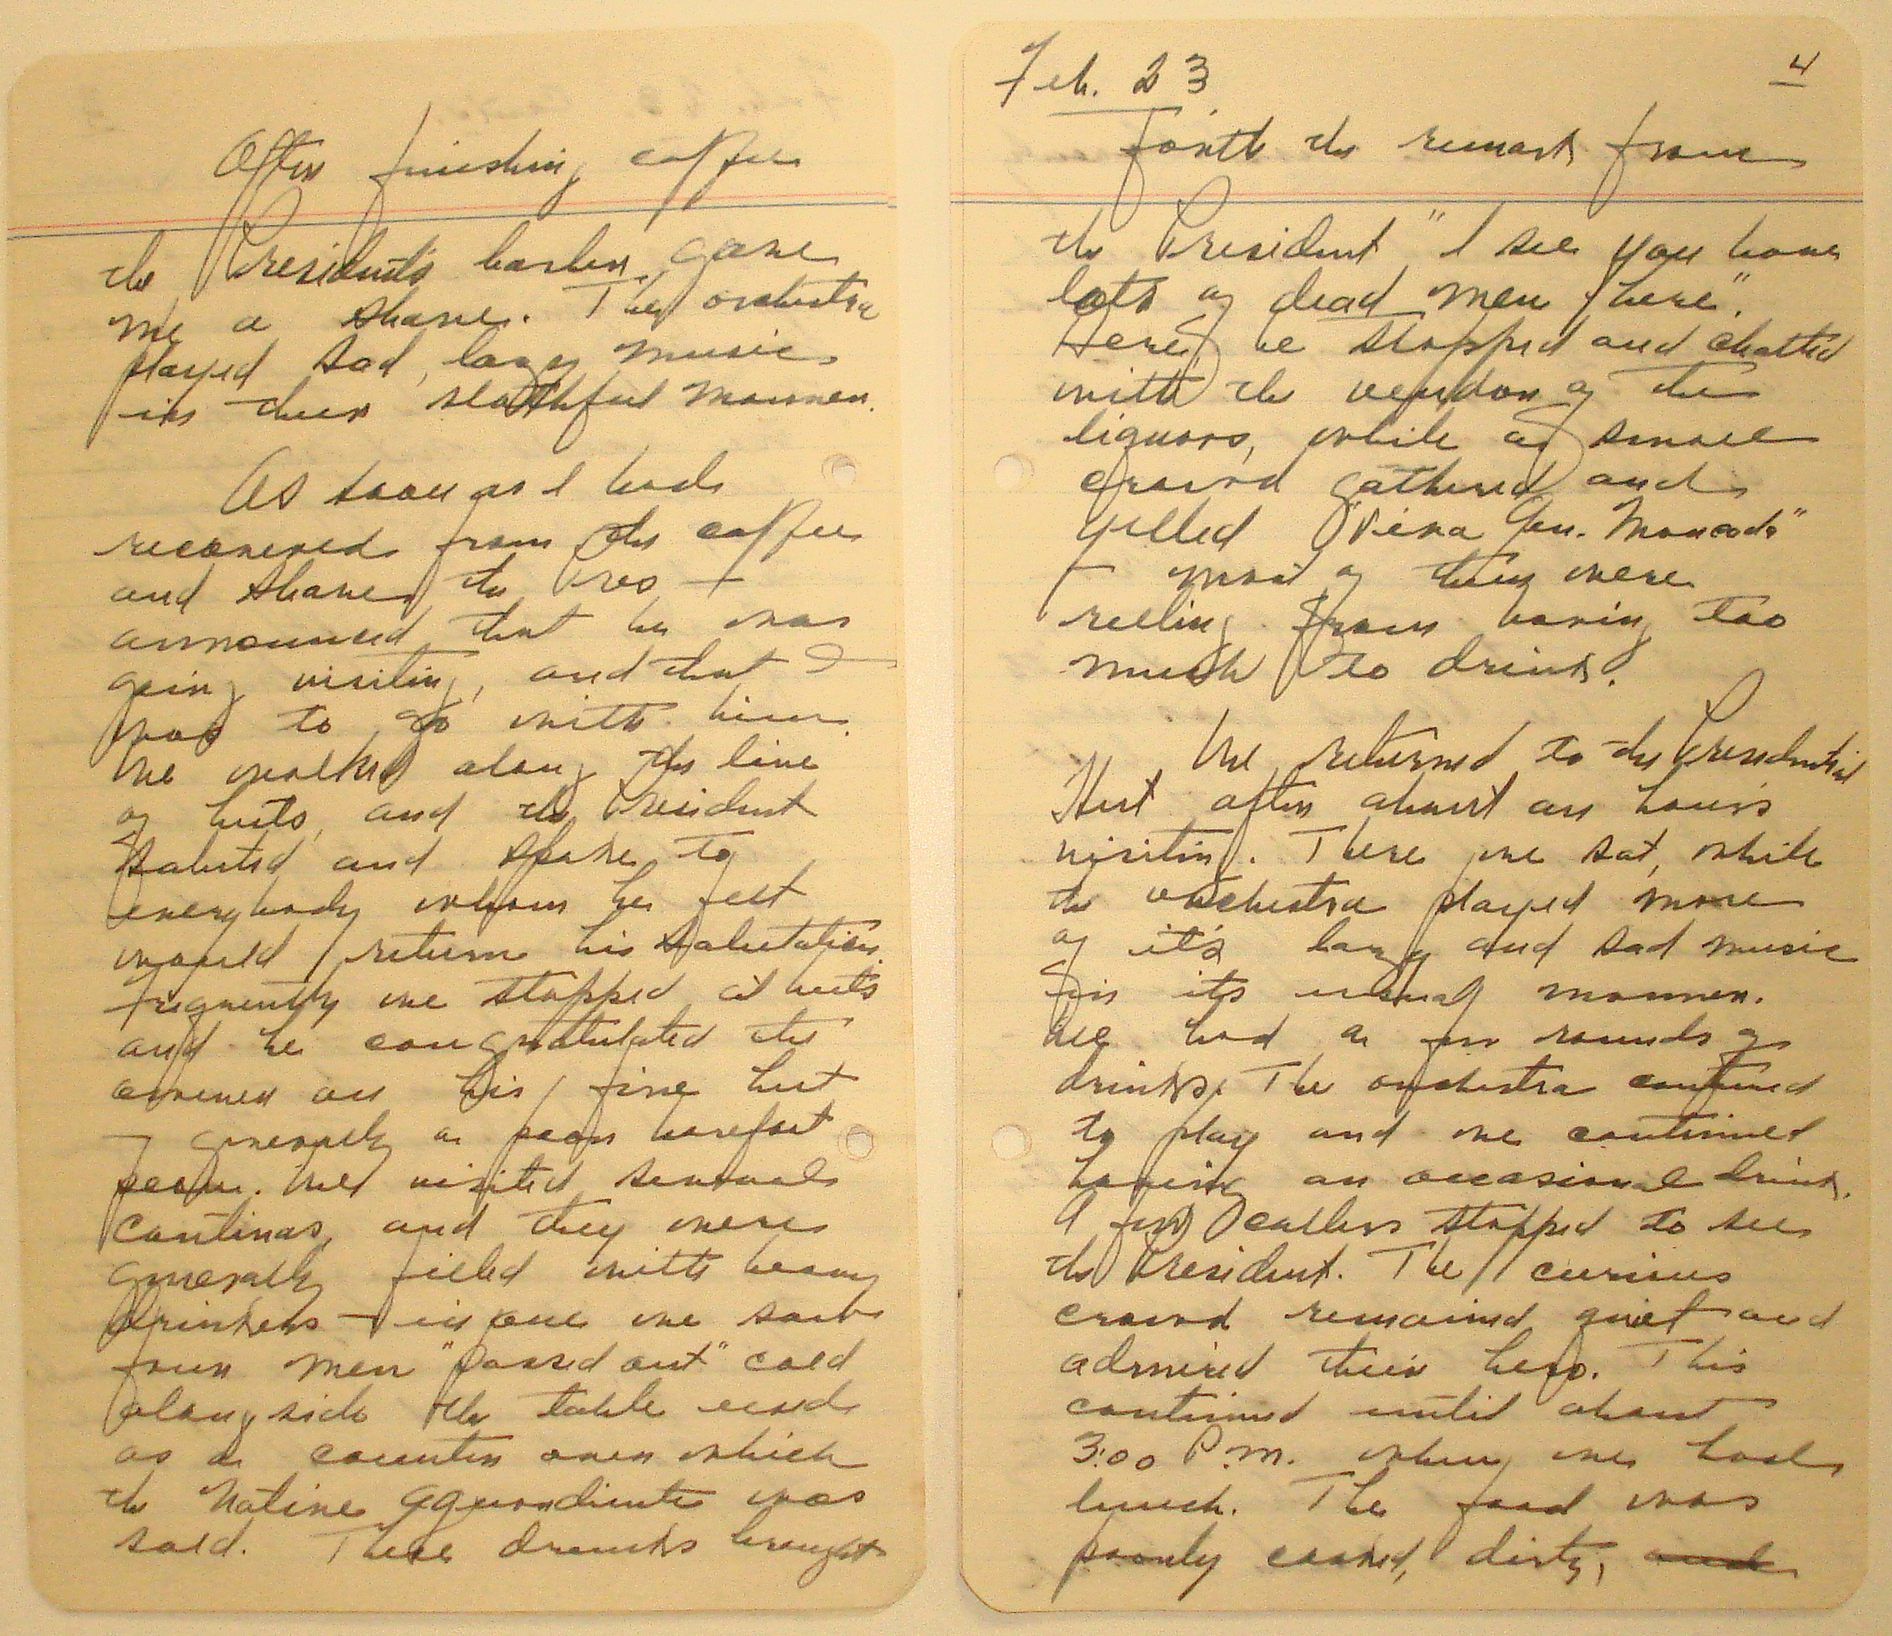 After finishing coffee
the President's barber gave
me a shave. The orchestra
played sad, lazy music
in their slothful manner.
As soon as I had
recovered from the coffee
and shave the Pres —
announced that he was
going visiting, and that I
was to go with him.
We walked along the line
of huts, and the President
saluted and spoke to
everybody whom he felt
would return his salutation.
Frequently we stopped at huts
and he congratulated the
owner on his fine hut
— generally a poor barefoot
peon. We visited several
cantinas, and they were
generally filled with heavy
drinkers — in one we saw
four men "passed out" cold
along side the table used
as a counter over which
the native aguardiente was
sold. These drunks brought
Feb. 23
4
forth the remark from
the President "I see you have
lots of dead men here".
Here he stopped and chatted
with the vendor of the
liquors, while a small
crowd gathered and
yelled "Viva Gen. Moncada"
— most of them were
reeling from having too
much to drink.
We returned to the Presidential
Hut after about an hour's
visiting. There we sat, while
the orchestra played more
of it's lazy and sad music
in its usual manner.
We had a few rounds of
drinks. The orchestra continued
to play and we continued
having an occasional drink.
A few callers stopped to see
the President. The curious
crowd remained quiet and
admired their hero. This
continued until about
3:00 P.m. when we had
lunch. The food was
poorly cooked, dirty, and